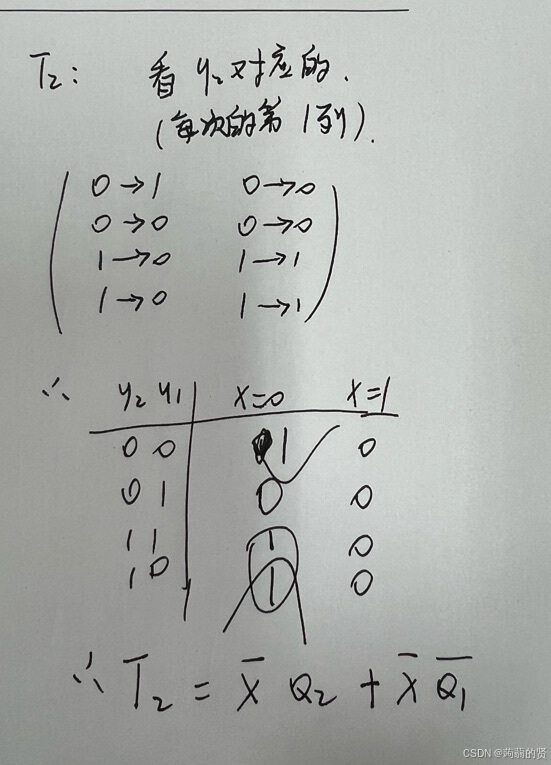 T₂: 看 y₂ 对应的.
(每次的第1列).
0→1 0→0
0→0 0→0
1→0 1→1
1→0 1→1
∴ y₂ y₁ x=0 x=1
0 0 1 0
0 1 0 0
1 1 1 0
1 0 1 0
∴ T₂ = X̄ Q₂ + X̄ Q̄₁
CSDN @蒟蒻的贤